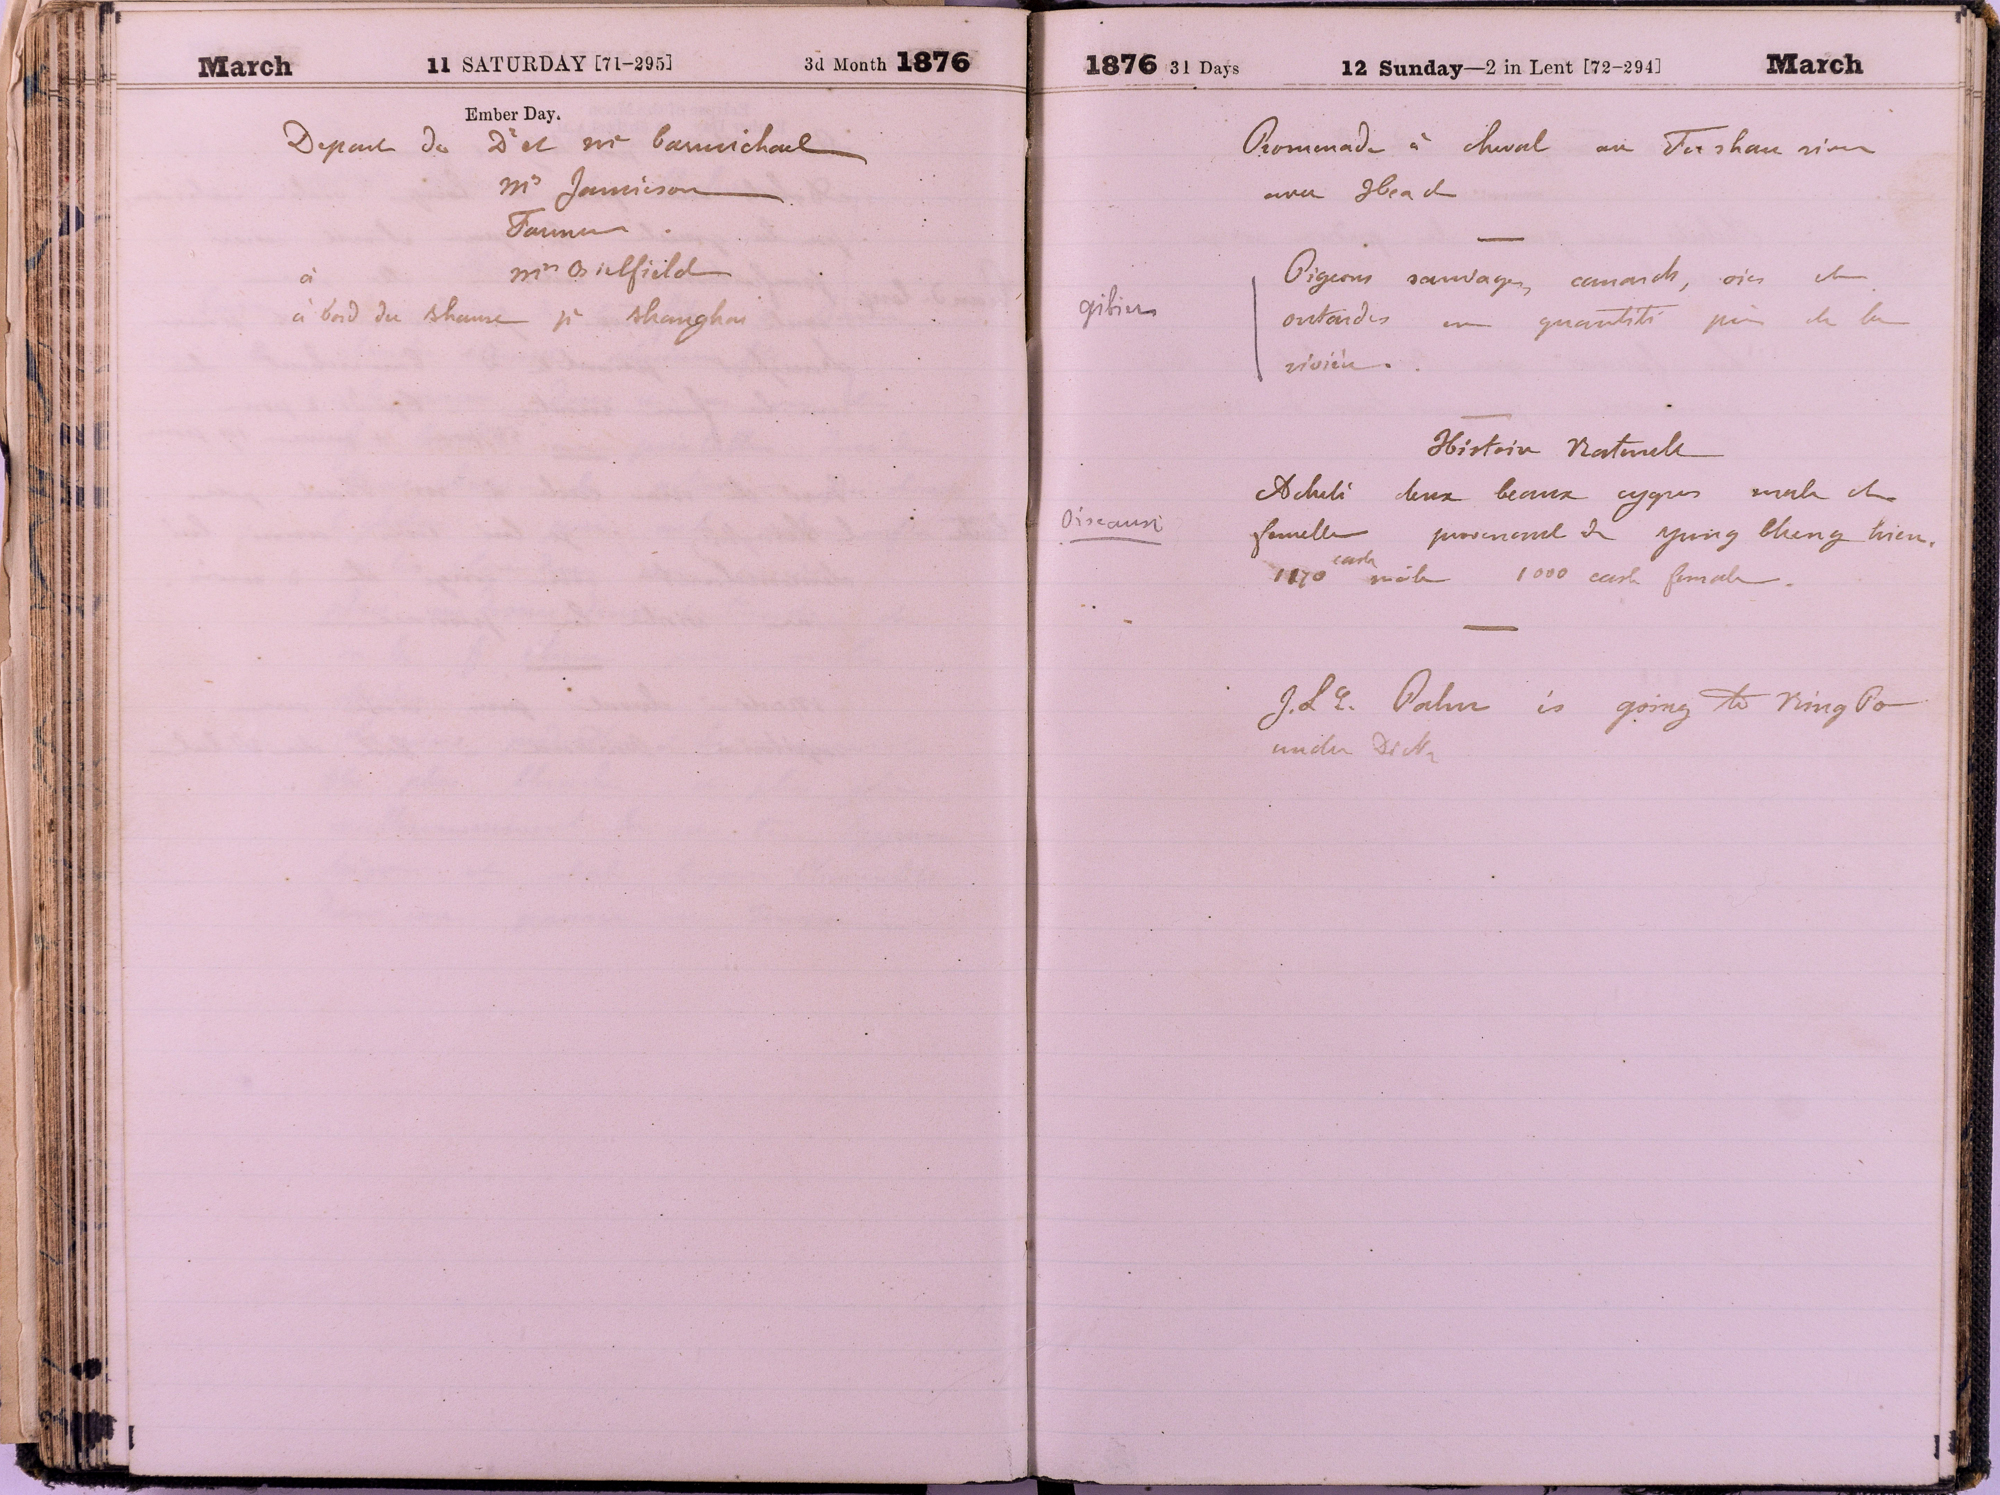 March 11 SATURDAY [71-295] 3d Month 1876
Ember Day.
Depart du Dr et Me Carmichael
Mrs Jamieson
Farmer
à Mrs Oielfield
à bord du Shanse pr Shanghai
1876 31 Days 12 Sunday—2 in Lent [72-294] March
Promenade à cheval au Fooshan river
avec Head
gibiers
Pigeons sauvages, canards, oies et
outardes en quantité près de la
rivière.
Histoire Naturelle
Oiseaux
Acheté deux beaux cygnes male et
femelle provenant de Yung Cheng hien.
1170 cash male 1000 cash female.
J.L.E. Palm is going to Ning Po
under Dick